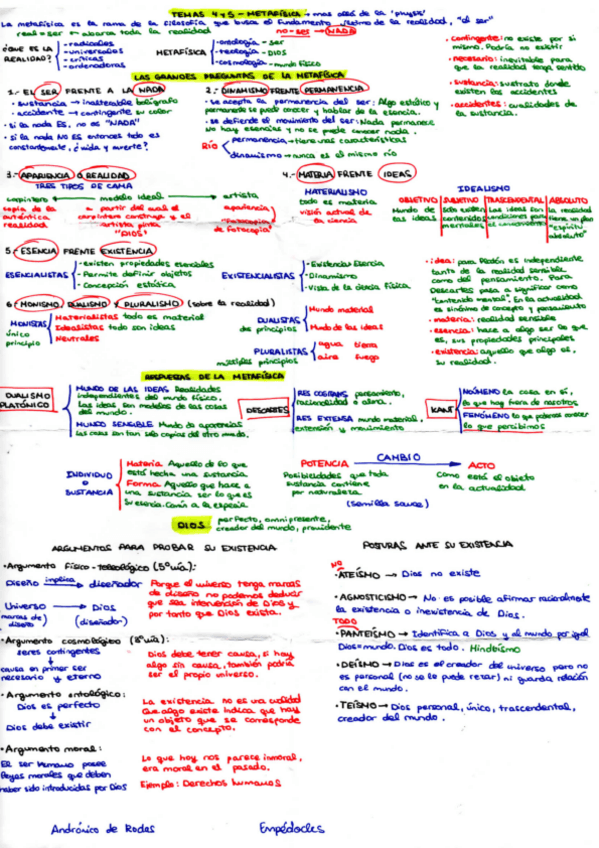 TEMAS 4 y 5 - METAFÍSICA → más allá de la "physis"
La metafísica es la rama de la filosofía que busca el fundamento último de la realidad, "el ser"
real = ser → abarca toda la realidad
no-ser → NADA
¿QUE ES LA REALIDAD?
- radicales
- universales
- críticas
- ordenadoras
METAFÍSICA
- ontología - ser
- teología - DIOS
- cosmología - mundo físico
· contingente: no existe por sí
mismo. Podría no existir
· necesario: inevitable para
que la realidad tenga sentido
· sustancia: sustrato donde
existen los accidentes
· accidentes: cualidades de
la sustancia.
LAS GRANDES PREGUNTAS DE LA METAFÍSICA
1.- EL SER FRENTE A LA NADA
· sustancia → inalterable bolígrafo
· accidente → contingente su color
· si la nada Es, no es "NADA"
· si la nada NO ES entonces todo es
constante, ¿vida y muerte?
2.- DINAMISMO FRENTE PERMANENCIA
· se acepta la permanencia del ser: Algo estático y
permanente se puede conocer y hablar de la esencia.
· se defiende el movimiento del ser: Nada permanece
No hay esencias y no se puede conocer nada.
RÍO
permanencia → tiene unas características
dinamismo → nunca es el mismo río
3.- APARIENCIA O REALIDAD
TRES TIPOS DE CAMA
carpintero ← modelo ideal → artista
copia de la
auténtica
realidad
a partir del cual el
carpintero construye y el
artista pinta
"DIOS"
apariencia
"Fotocopia
de Fotocopia"
4.- MATERIA FRENTE IDEAS
MATERIALISMO
todo es materia
visión actual de
la ciencia
IDEALISMO
OBJETIVO SUBJETIVO TRASCENDENTAL ABSOLUTO
Mundo de
las ideas
Solo existen
contenidos
mentales
Las ideas son
condiciones para
el conocimiento
la realidad
tiene un plan
"espíritu
absoluto"
5.- ESENCIA FRENTE EXISTENCIA
ESENCIALISTAS
- existen propiedades esenciales
- Permite definir objetos
- Concepción estática
EXISTENCIALISTAS
- Existencia/Esencia
- Dinamismo
- Vista de la ciencia física
· idea: para Platón es independiente
tanto de la realidad sensible
como del pensamiento. Para
Descartes pasa a significar como
"contenido mental". En la actualidad
es sinónimo de concepto y pensamiento
· materia: realidad sensible
· esencia: hace a algo ser lo que
es, sus propiedades principales
· existencia: aquello que algo es,
su realidad.
6.- MONISMO, DUALISMO Y PLURALISMO (sobre la realidad)
MONISTAS
único
principio
Materialistas todo es material
Idealistas todo son ideas
Neutrales
DUALISTAS
dos principios
Mundo material
Mundo de las ideas
PLURALISTAS
múltiples principios
agua tierra
aire fuego
RESPUESTAS DE LA METAFÍSICA
DUALISMO PLATÓNICO
MUNDO DE LAS IDEAS Realidades
independientes del mundo físico.
Las ideas son modelos de las cosas
del mundo.
MUNDO SENSIBLE Mundo de apariencias
Las cosas son tan solo copias del otro mundo.
DESCARTES
RES COGITANS pensamiento,
racionalidad o alma.
RES EXTENSA mundo material,
extensión y movimiento
KANT
NOÚMENO la cosa en sí,
lo que hay fuera de nosotros
FENÓMENO lo que podemos conocer
lo que percibimos
INDIVIDUO
O
SUSTANCIA
Materia. Aquello de lo que
está hecha una sustancia.
Forma. Aquello que hace a
una sustancia ser lo que es
Su esencia. Común a la especie
POTENCIA CAMBIO → ACTO
Posibilidades que toda
sustancia contiene
por naturaleza
como está el objeto
en la actualidad
(semilla sauce)
DIOS
perfecto, omnipresente,
creador del mundo, providente
ARGUMENTOS PARA PROBAR SU EXISTENCIA
· Argumento Físico-teleológico (5ª vía):
Diseño implica → diseñador
Universo → Dios
marcas de diseño
(diseñador)
Porque el universo tenga marcas
de diseño no podemos deducir
que sea intervención de Dios y
por tanto que Dios exista.
· Argumento cosmológico (3ª vía):
seres contingentes
↓
causa en primer ser
necesario y eterno
Dios debe tener causa, si hay
algo sin causa, también podría
ser el propio universo.
· Argumento ontológico:
Dios es perfecto
↓
Dios debe existir
La existencia no es una cualidad
Que algo exista indica que hay
un objeto que se corresponde
con el concepto.
· Argumento moral:
El ser humano posee
leyes morales que deben
haber sido introducidas por Dios
Lo que hoy nos parece inmoral,
era moral en el pasado.
Ejemplo: Derechos humanos
POSTURAS ANTE SU EXISTENCIA
NO
· ATEÍSMO → Dios no existe
· AGNOSTICISMO → No es posible afirmar racionalmente
la existencia o inexistencia de Dios.
TODO
· PANTEÍSMO → Identifica a Dios y al mundo por igual
Dios = mundo. Dios es todo. Hinduismo
· DEÍSMO → Dios es el creador del universo pero no
es personal (no se le puede rezar) ni guarda relación
con el mundo.
· TEÍSMO → Dios personal, único, trascendental,
creador del mundo.
Andrónico de Rodas
Empédocles